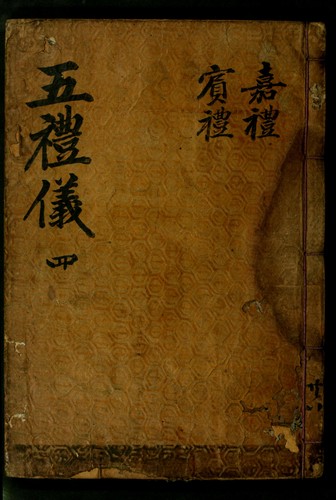 嘉禮
賓禮
五禮儀 四